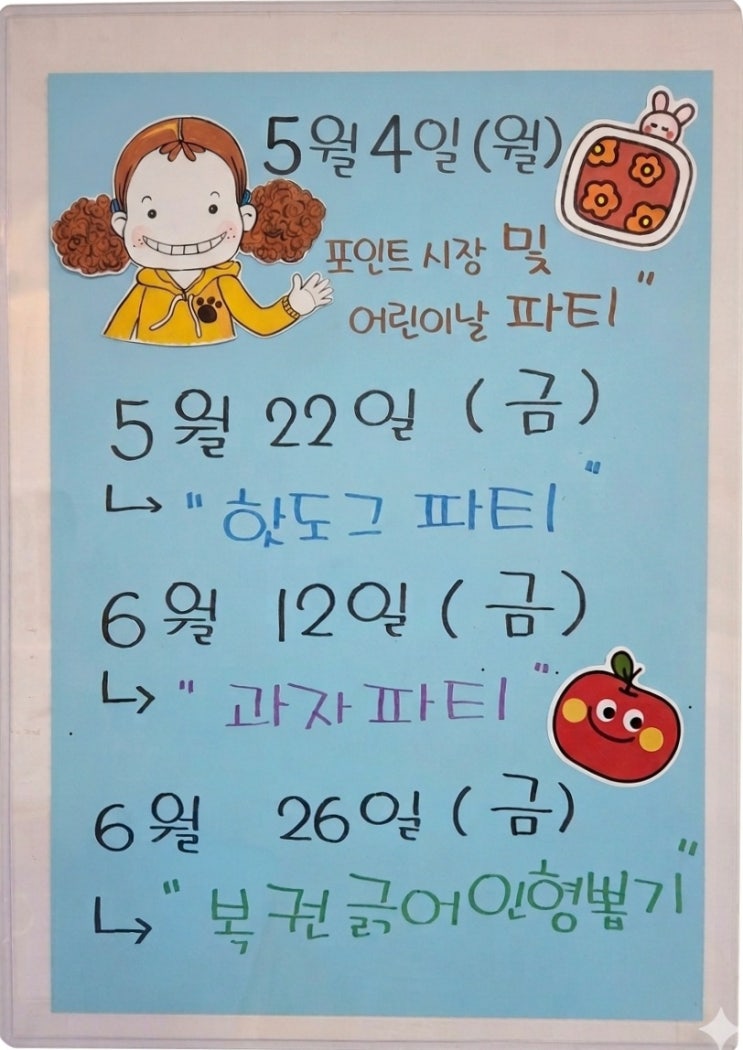 5월 4일 (월)
포인트 시장 및
어린이날 파티"
5월 22일 (금)
↳ "핫도그 파티"
6월 12일 (금)
↳ "과자파티"
6월 26일 (금)
↳ "복권 긁어 인형뽑기"